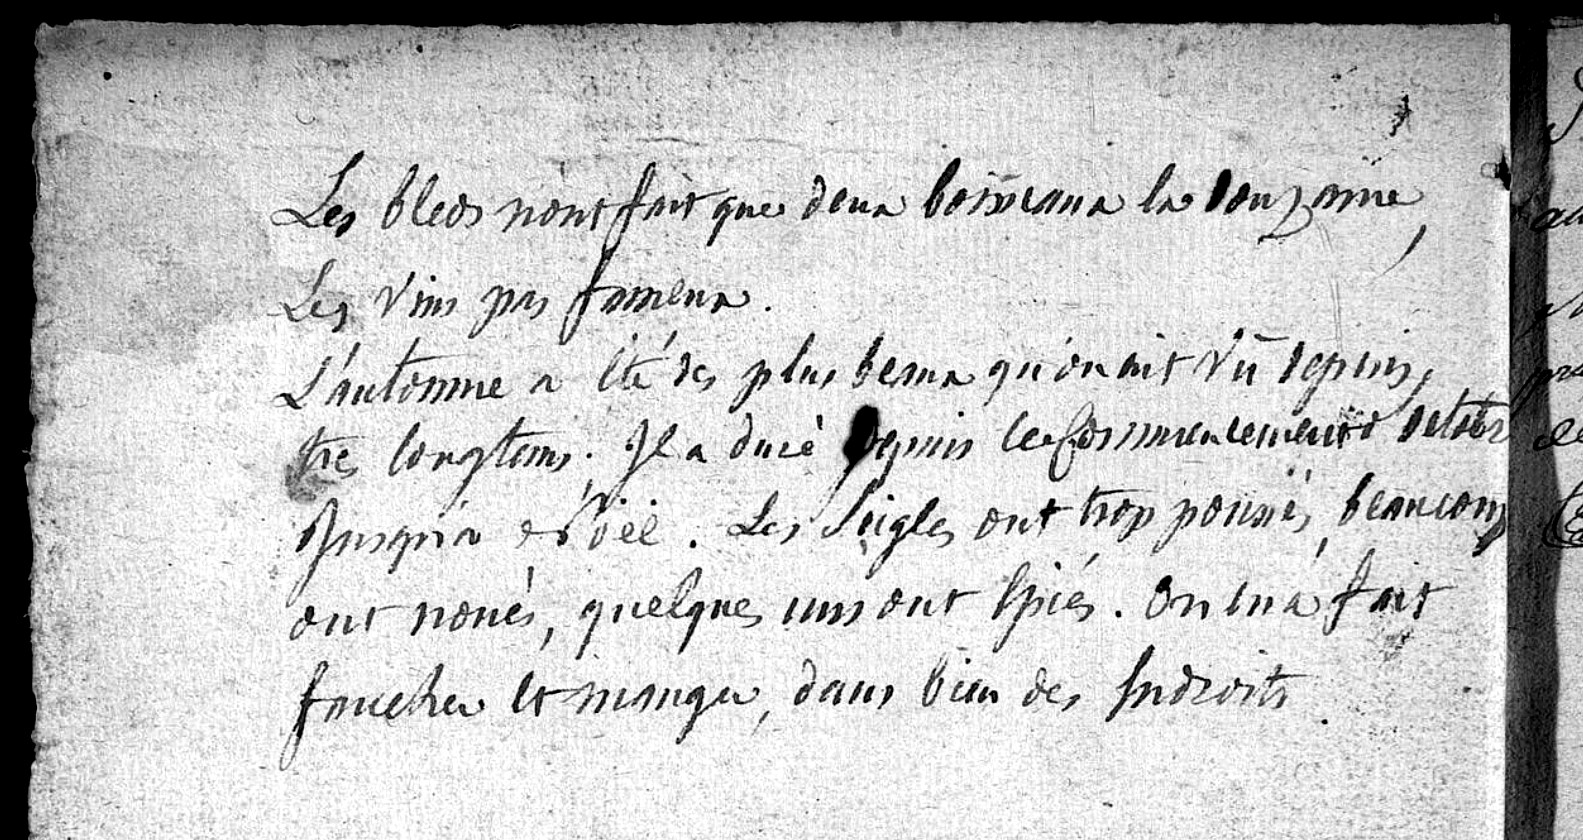 Les bleds n'ont fait que deux boisseaux la douzaine,
Les vins pas fameux.
L'automne a été des plus beaux qu'on ait vû depuis,
tres longtems. Il a duré depuis le commencement d'octobr
Jusqu'a Noël. Les Seigles ont trop poussés, beaucoup
ont noués, quelques uns ont épiés. On en a fait
faucher et manger, dans bien des Endroits.